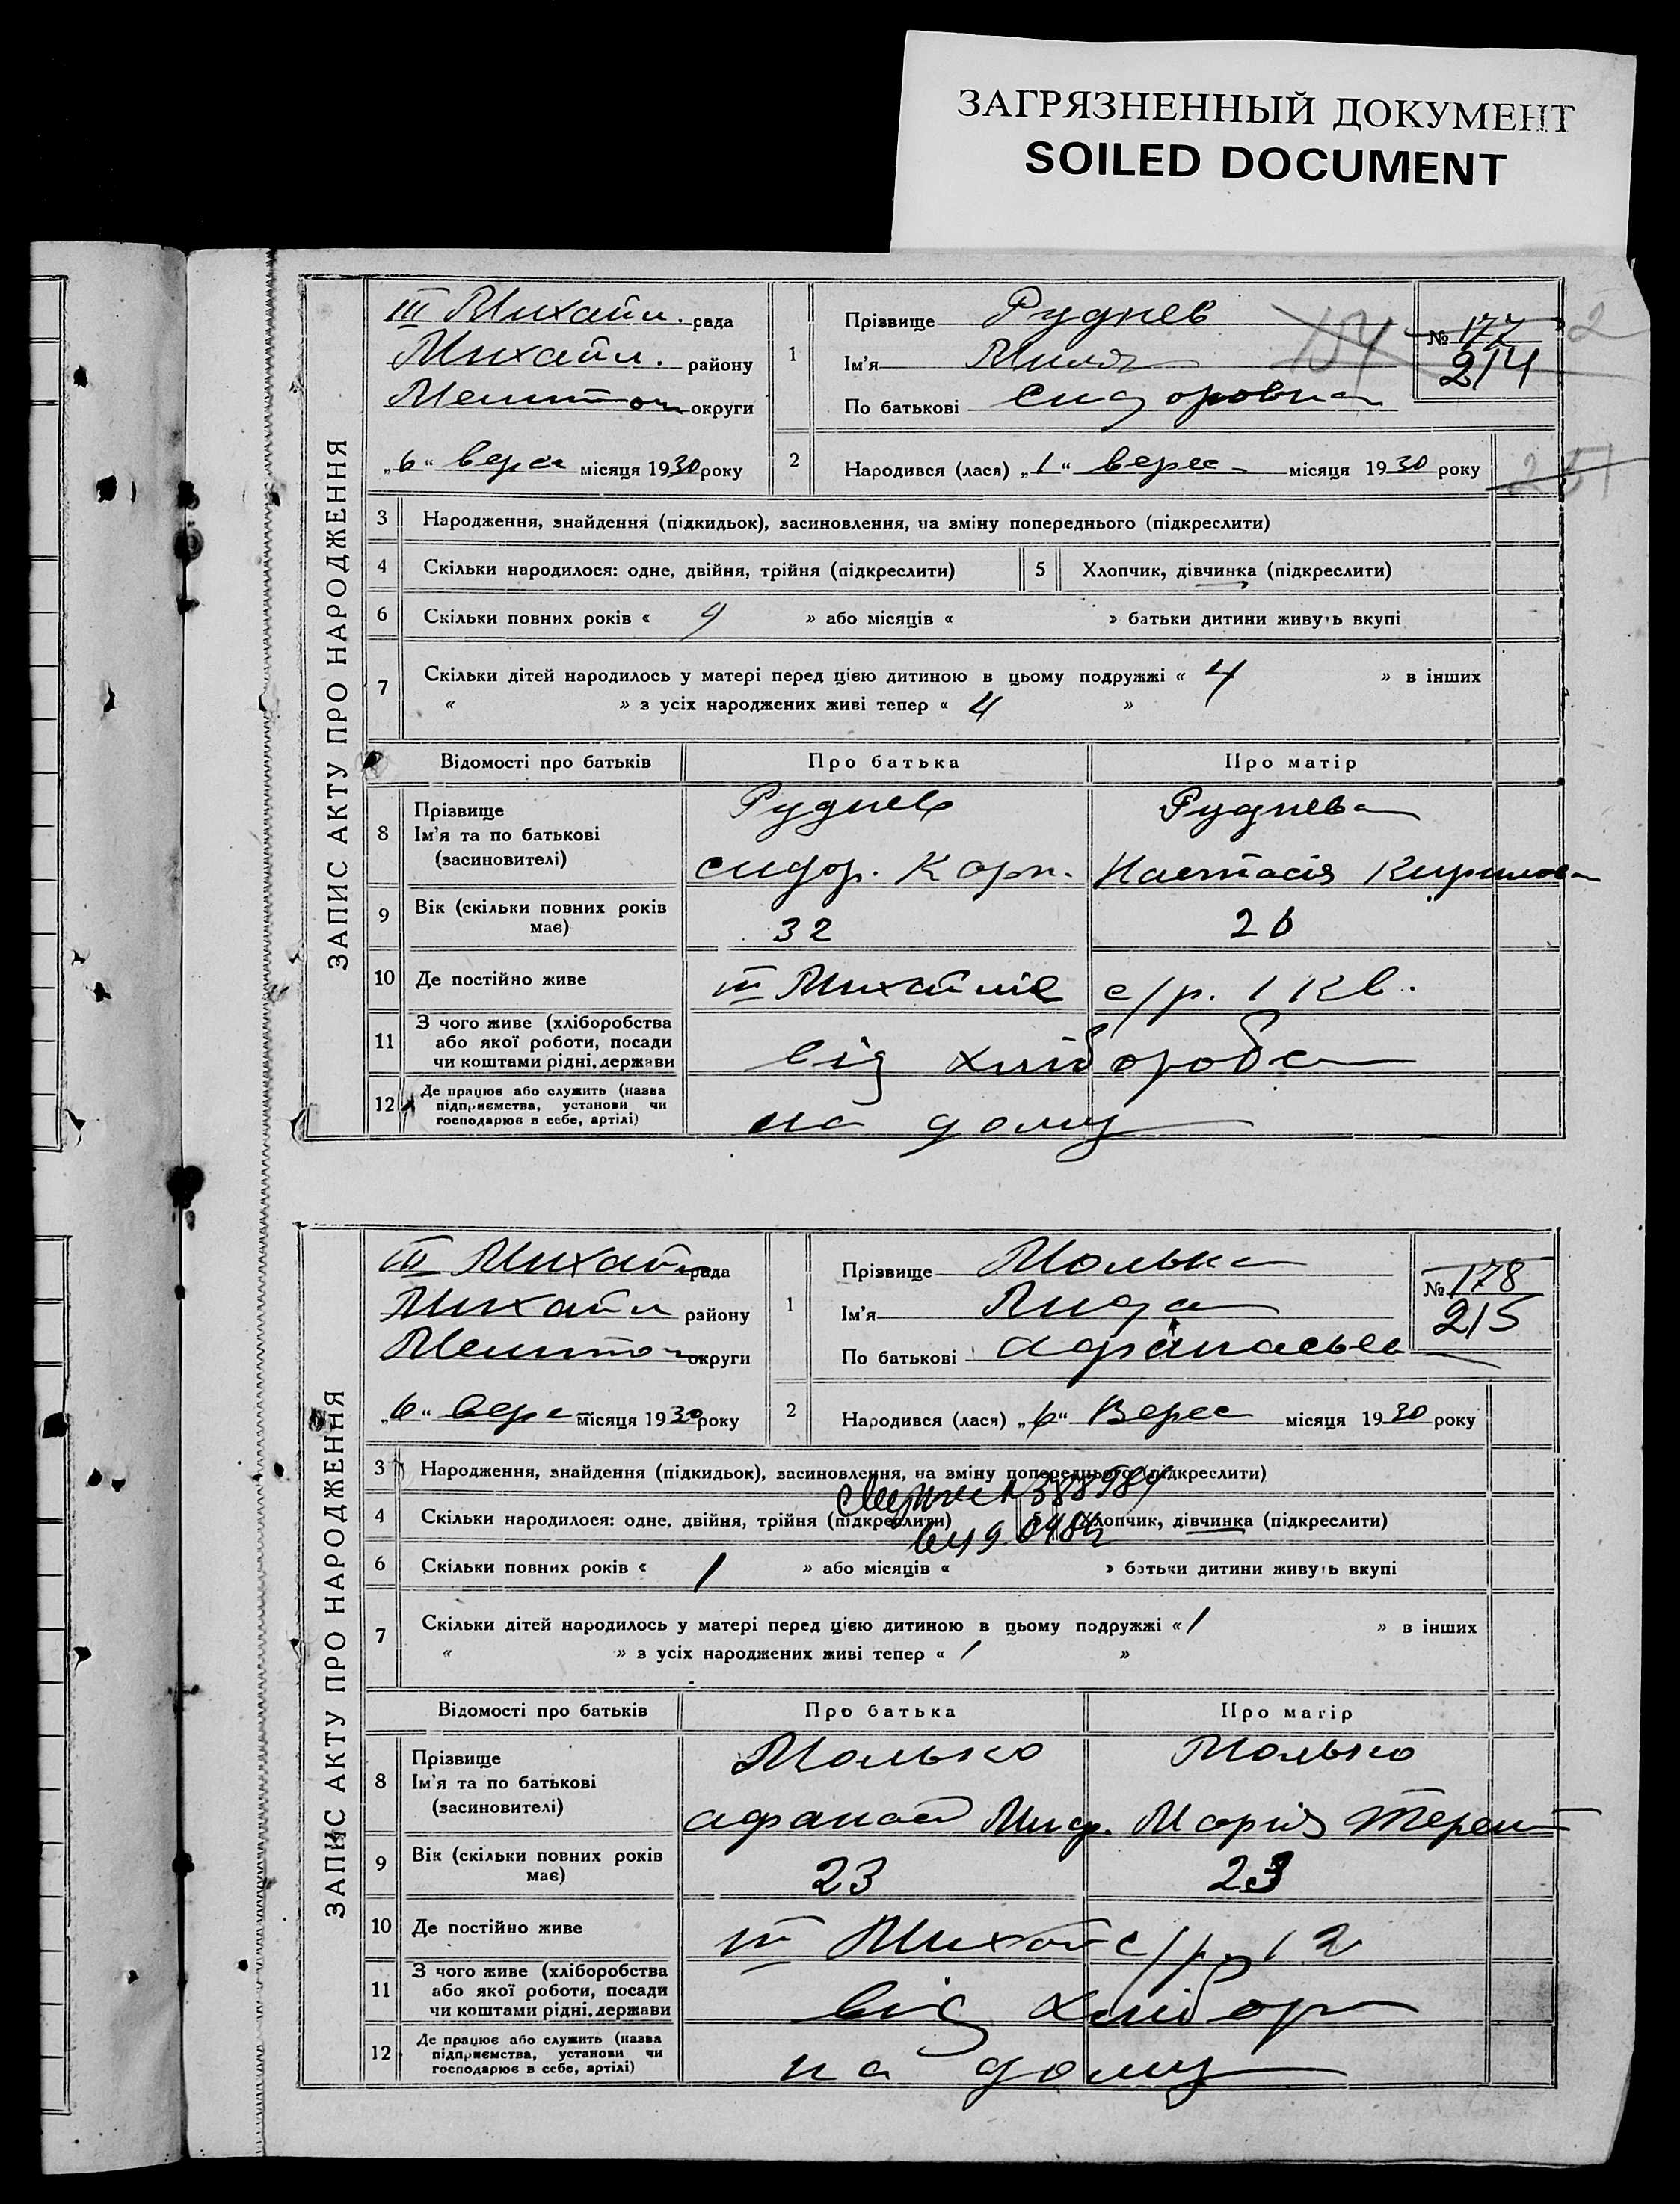 ЗАГРЯЗНЕННЫЙ ДОКУМЕНТ
SOILED DOCUMENT
ЗАПИС АКТУ ПРО НАРОДЖЕННЯ
III Михайл. рада
Михайл. району
Мелитоп округи
„6“ верес місяця 1930 року
1
Прізвище Руднев
Ім'я
По батькові Сидоровна
№ 177
214
2
Народився (лася) „1“ верес місяця 1930 року
251
3 Народження, знайдення (підкидьок), засиновлення, на зміну попереднього (підкреслити)
4 Скільки народилося: одне, двійня, трійня (підкреслити) 5 Хлопчик, дівчинка (підкреслити)
6 Скільки повних років « 9 » або місяців « » батьки дитини живуть вкупі
7 Скільки дітей народилось у матері перед цією дитиною в цьому подружжі « 4 » в інших
« » з усіх народжених живі тепер « 4 »
Відомості про батьків Про батька Про матір
8 Прізвище
Ім'я та по батькові
(засиновителі)
Руднев
Сидор. Карп.
Руднева
Настасія Кирилов
9 Вік (скільки повних років має) 32 26
10 Де постійно живе III Михайлів с/р. 1 кв.
11 З чого живе (хліборобства
або якої роботи, посади
чи коштами рідні, держави
від хлібороба
12 Де працює або служить (назва
підприємства, установи чи
господарює в себе, артілі)
на дому
ЗАПИС АКТУ ПРО НАРОДЖЕННЯ
III Михайл рада
Михайл району
Мелитоп округи
„6“ верес місяця 1930 року
1
Прізвище Молька
Ім'я Лида
По батькові Афанасьев
№ 178
215
2
Народився (лася) „6“ Верес місяця 1930 року
3 Народження, знайдення (підкидьок), засиновлення, на зміну попереднього (підкреслити)
4 Скільки народилося: одне, двійня, трійня (підкреслити) 5 Хлопчик, дівчинка (підкреслити)
6 Скільки повних років « 1 » або місяців « » батьки дитини живуть вкупі
7 Скільки дітей народилось у матері перед цією дитиною в цьому подружжі « 1 » в інших
« » з усіх народжених живі тепер « 1 »
Відомості про батьків Про батька Про матір
8 Прізвище
Ім'я та по батькові
(засиновителі)
Молько
Афанас Миф.
Молько
Марія Терент
9 Вік (скільки повних років має) 23 23
10 Де постійно живе III Михай с/р. 12
11 З чого живе (хліборобства
або якої роботи, посади
чи коштами рідні, держави
від хлібор
12 Де працює або служить (назва
підприємства, установи чи
господарює в себе, артілі)
на дому